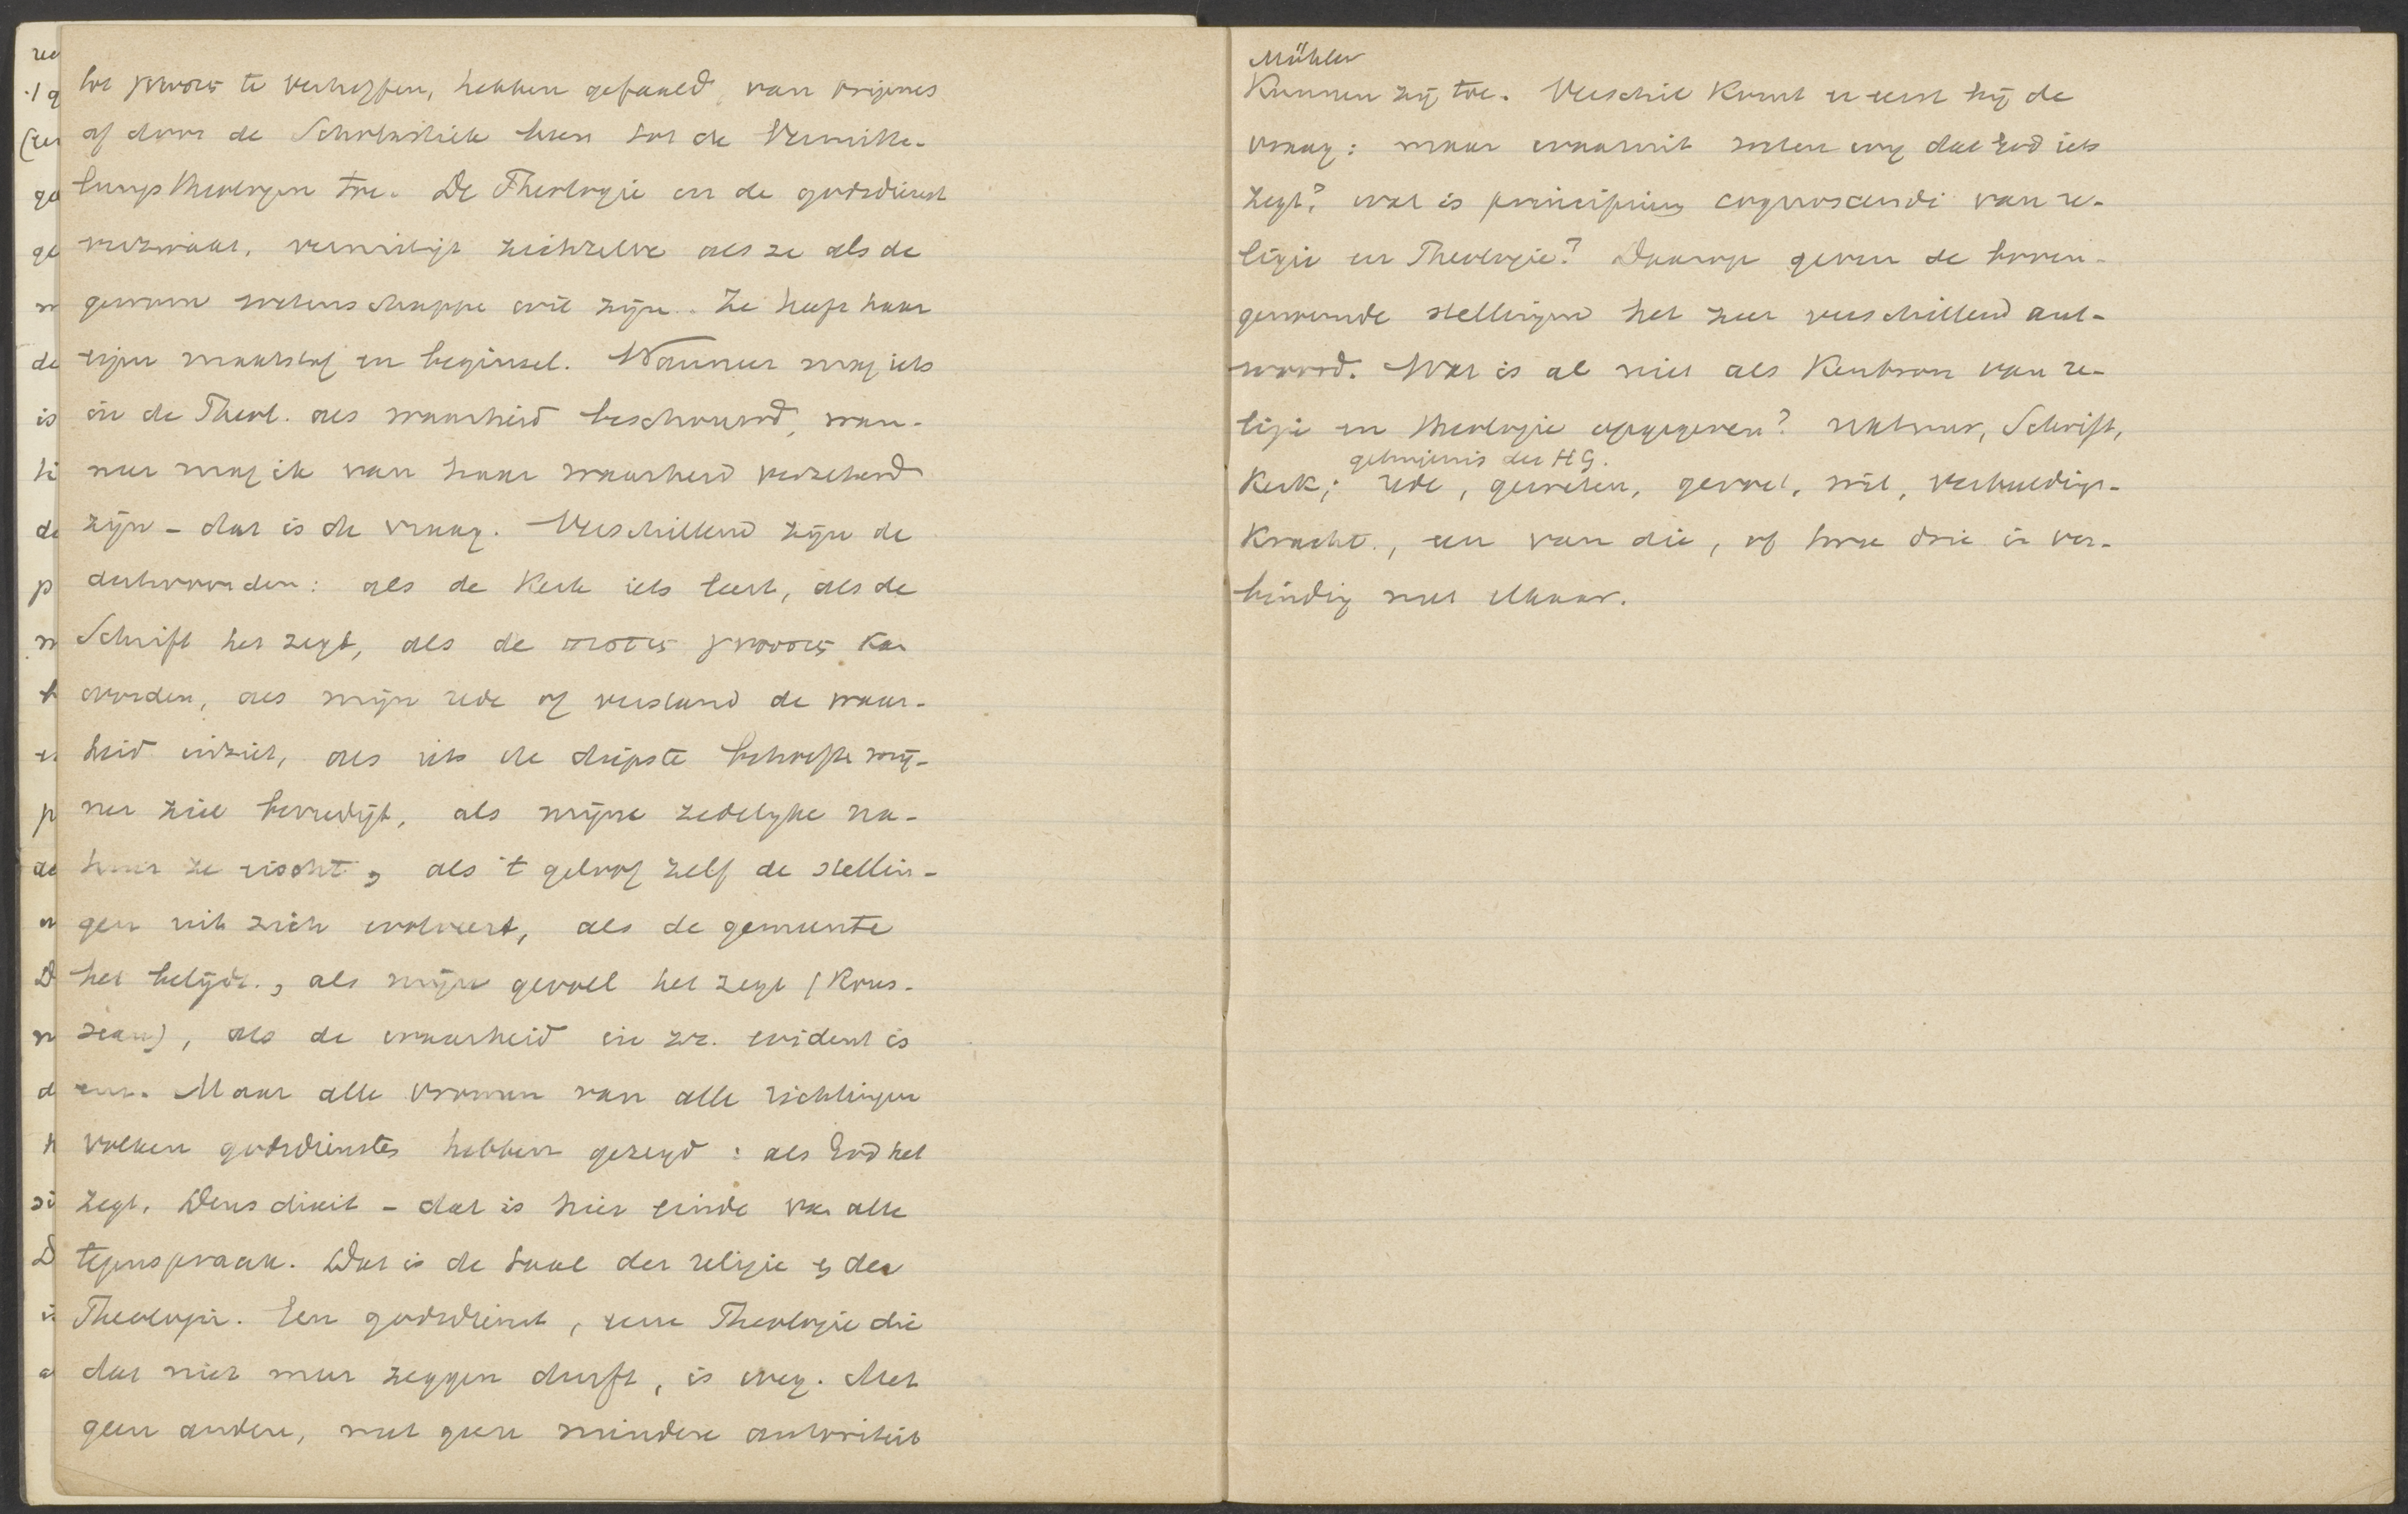 tot γνωσις te verheffen, hebben gefaald, van Origenes
af door de Scholastiek heen tot de Vermitte-
lungstheologen toe. De Theologie en de godsdienst
verzwakt, vernietigt zichzelve als ze als de
gewone wetenschappe wil zijn. Ze heeft haar
eigen maatstaf en beginsel. Wanneer mag iets
in de Theol. als waarheid beschouwd, wan-
neer mag ik van haar waarheid verzekerd
zijn - dat is de vraag. Verschillend zijn de
antwoorden: als de Kerk iets leert, als de
Schrift het zegt, als de πιστις γνωσις kan
worden, als mijn rede of verstand de waar-
heid inziet, als iets de diepste behoefte mij-
ner ziel bevredigt, als mijne zedelyke na-
tuur ze eischt, als 't geloof zelf de stellin-
gen uit zich evolveert, als de gemeente
het belijdt, als mijn gevoel het zegt (Rous-
seau), als de waarheid in zz. evident is
enz. Maar alle vromen van alle richtingen
volken godsdienstes hebben gezegd: als God het
zegt. Deus dixit - dat is hier einde van alle
tegenspraak. Dat is de taal der religie en der
Theologie. Een godsdienst, eene Theologie die
dat niet meer zeggen durft, is weg. Met
geen andere, met geen mindere autoriteit
Mühler
Kunnen zij toe. Verschil komt er eerst bij de
vraag: maar waaruit weten wij dat God iets
zegt? wat is principium cognoscendi van re-
ligie en Theologie? Daarop geven de boven-
genoemde stellingen het zeer verschillend ant-
woord. Wat is al niet als Kenbron van re-
ligie en theologie opgegeven? natuur, Schrift,
getuigenis des HG.
Kerk; rede, geweten, gevoel, wil, verbeeldings-
kracht, een van die, of twee drie in ver-
binding met elkaar.